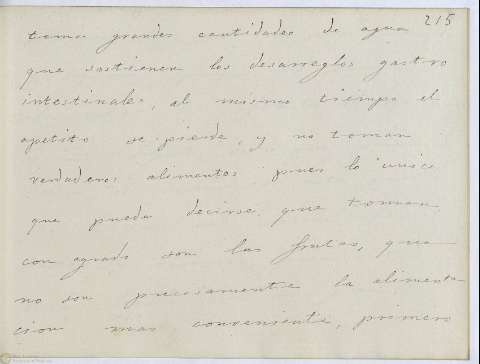 215
toma grandes cantidades de agua
que sostienen los desarreglos gastro
intestinales, al mismo tiempo el
apetito se pierde, y no toman
verdaderos alimentos pues lo unico
que puede decirse que toman
con agrado son las frutas, que
no son precisamente la alimenta-
cion mas conveniente, primero